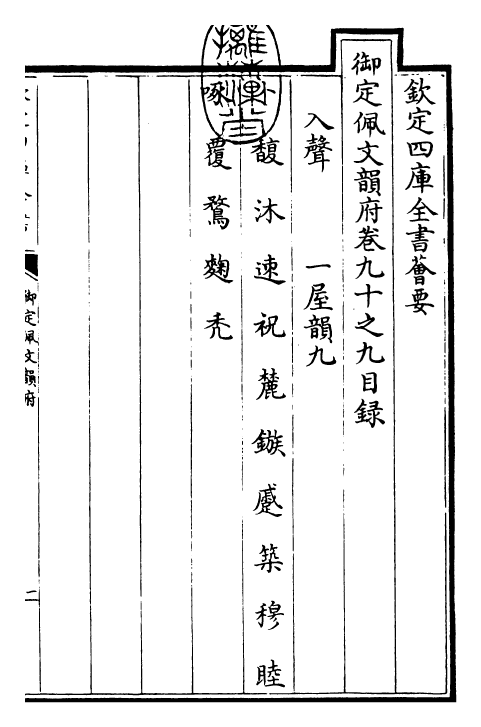 欽定四庫全書薈要
御定佩文韻府卷九十之九目錄
入聲 一屋韻九
馥 沐 速 祝 麓 鏃 蹙 築 穆 睦
啄 覆 鶩 麴 禿
御定佩文韻府
二